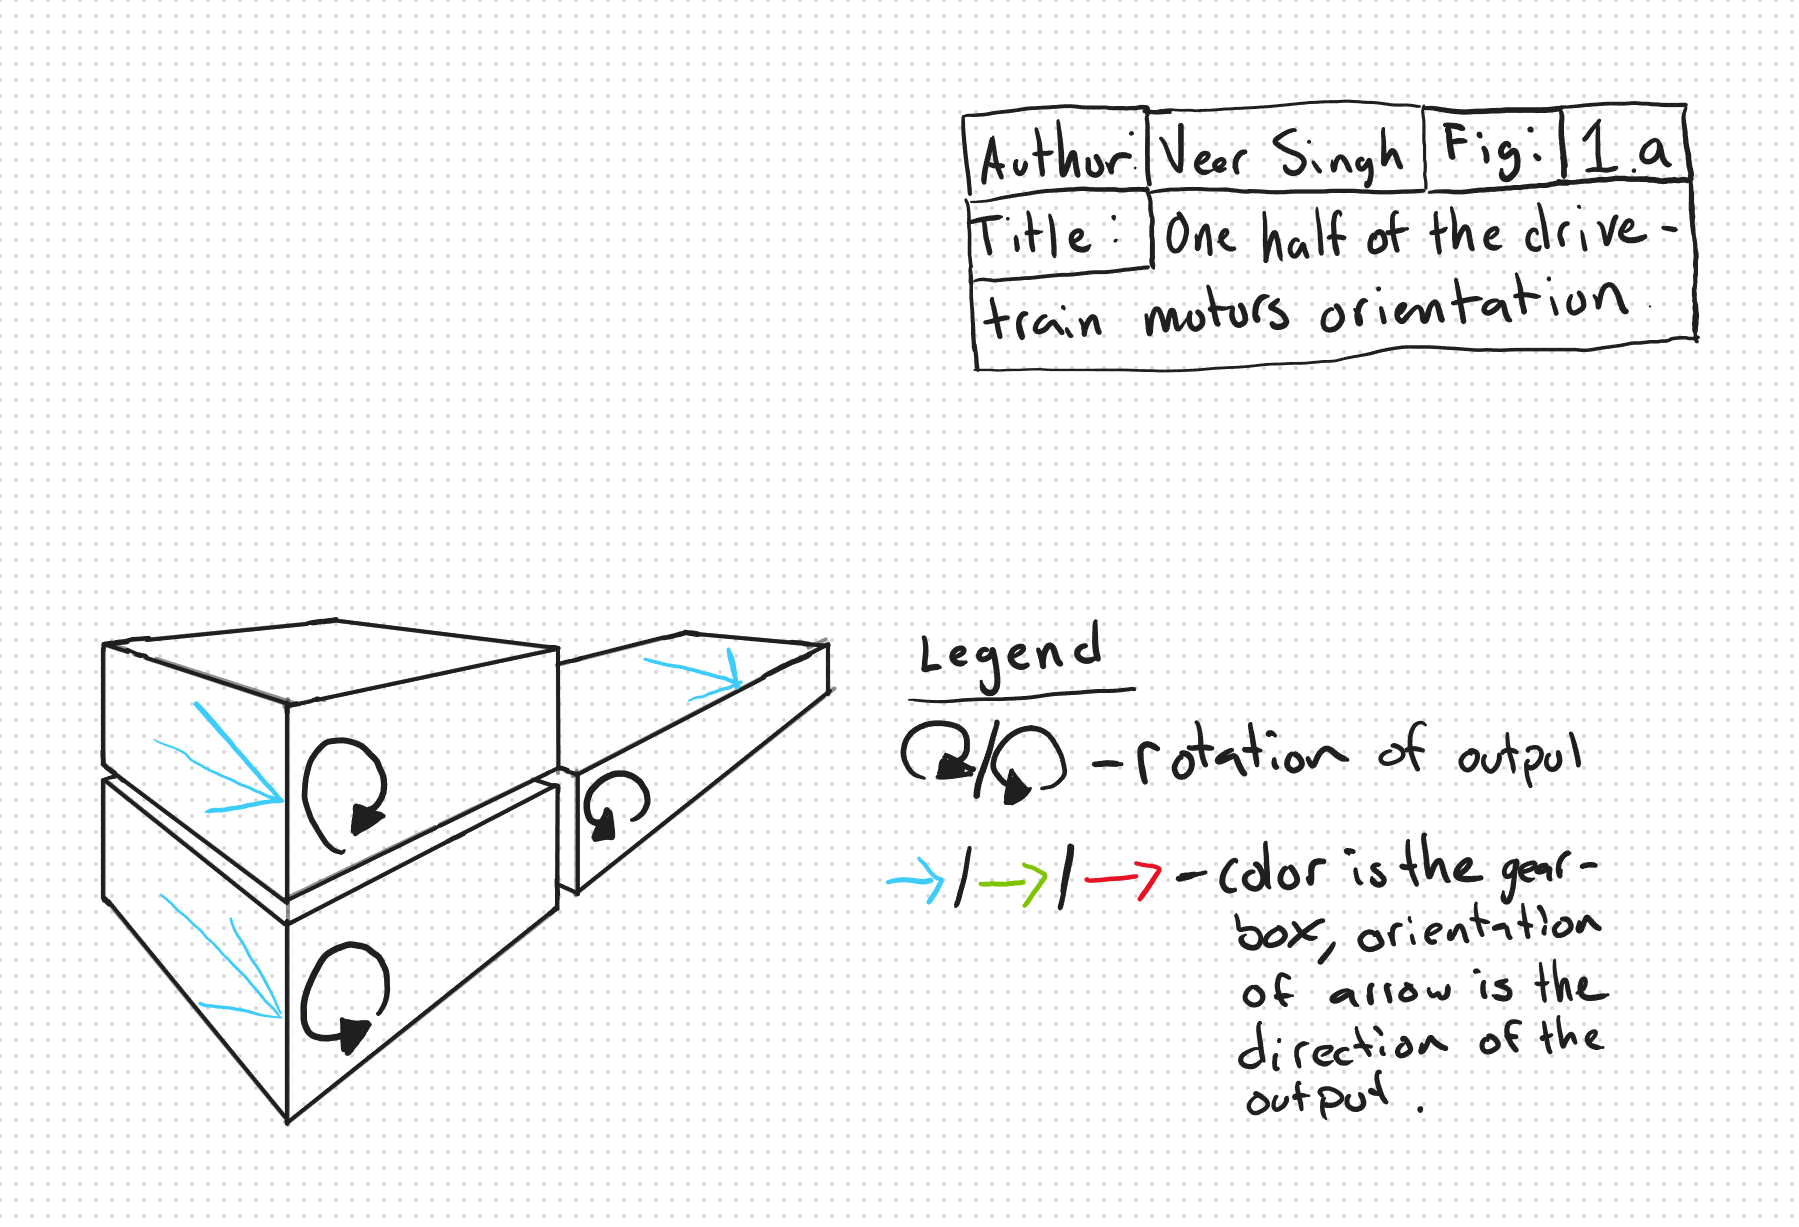 Author: Veer Singh Fig: 1.a
Title: One half of the drive-
train motors orientation
Legend
/ - rotation of output
/ / - color is the gear-
box, orientation
of arrow is the
direction of the
output.